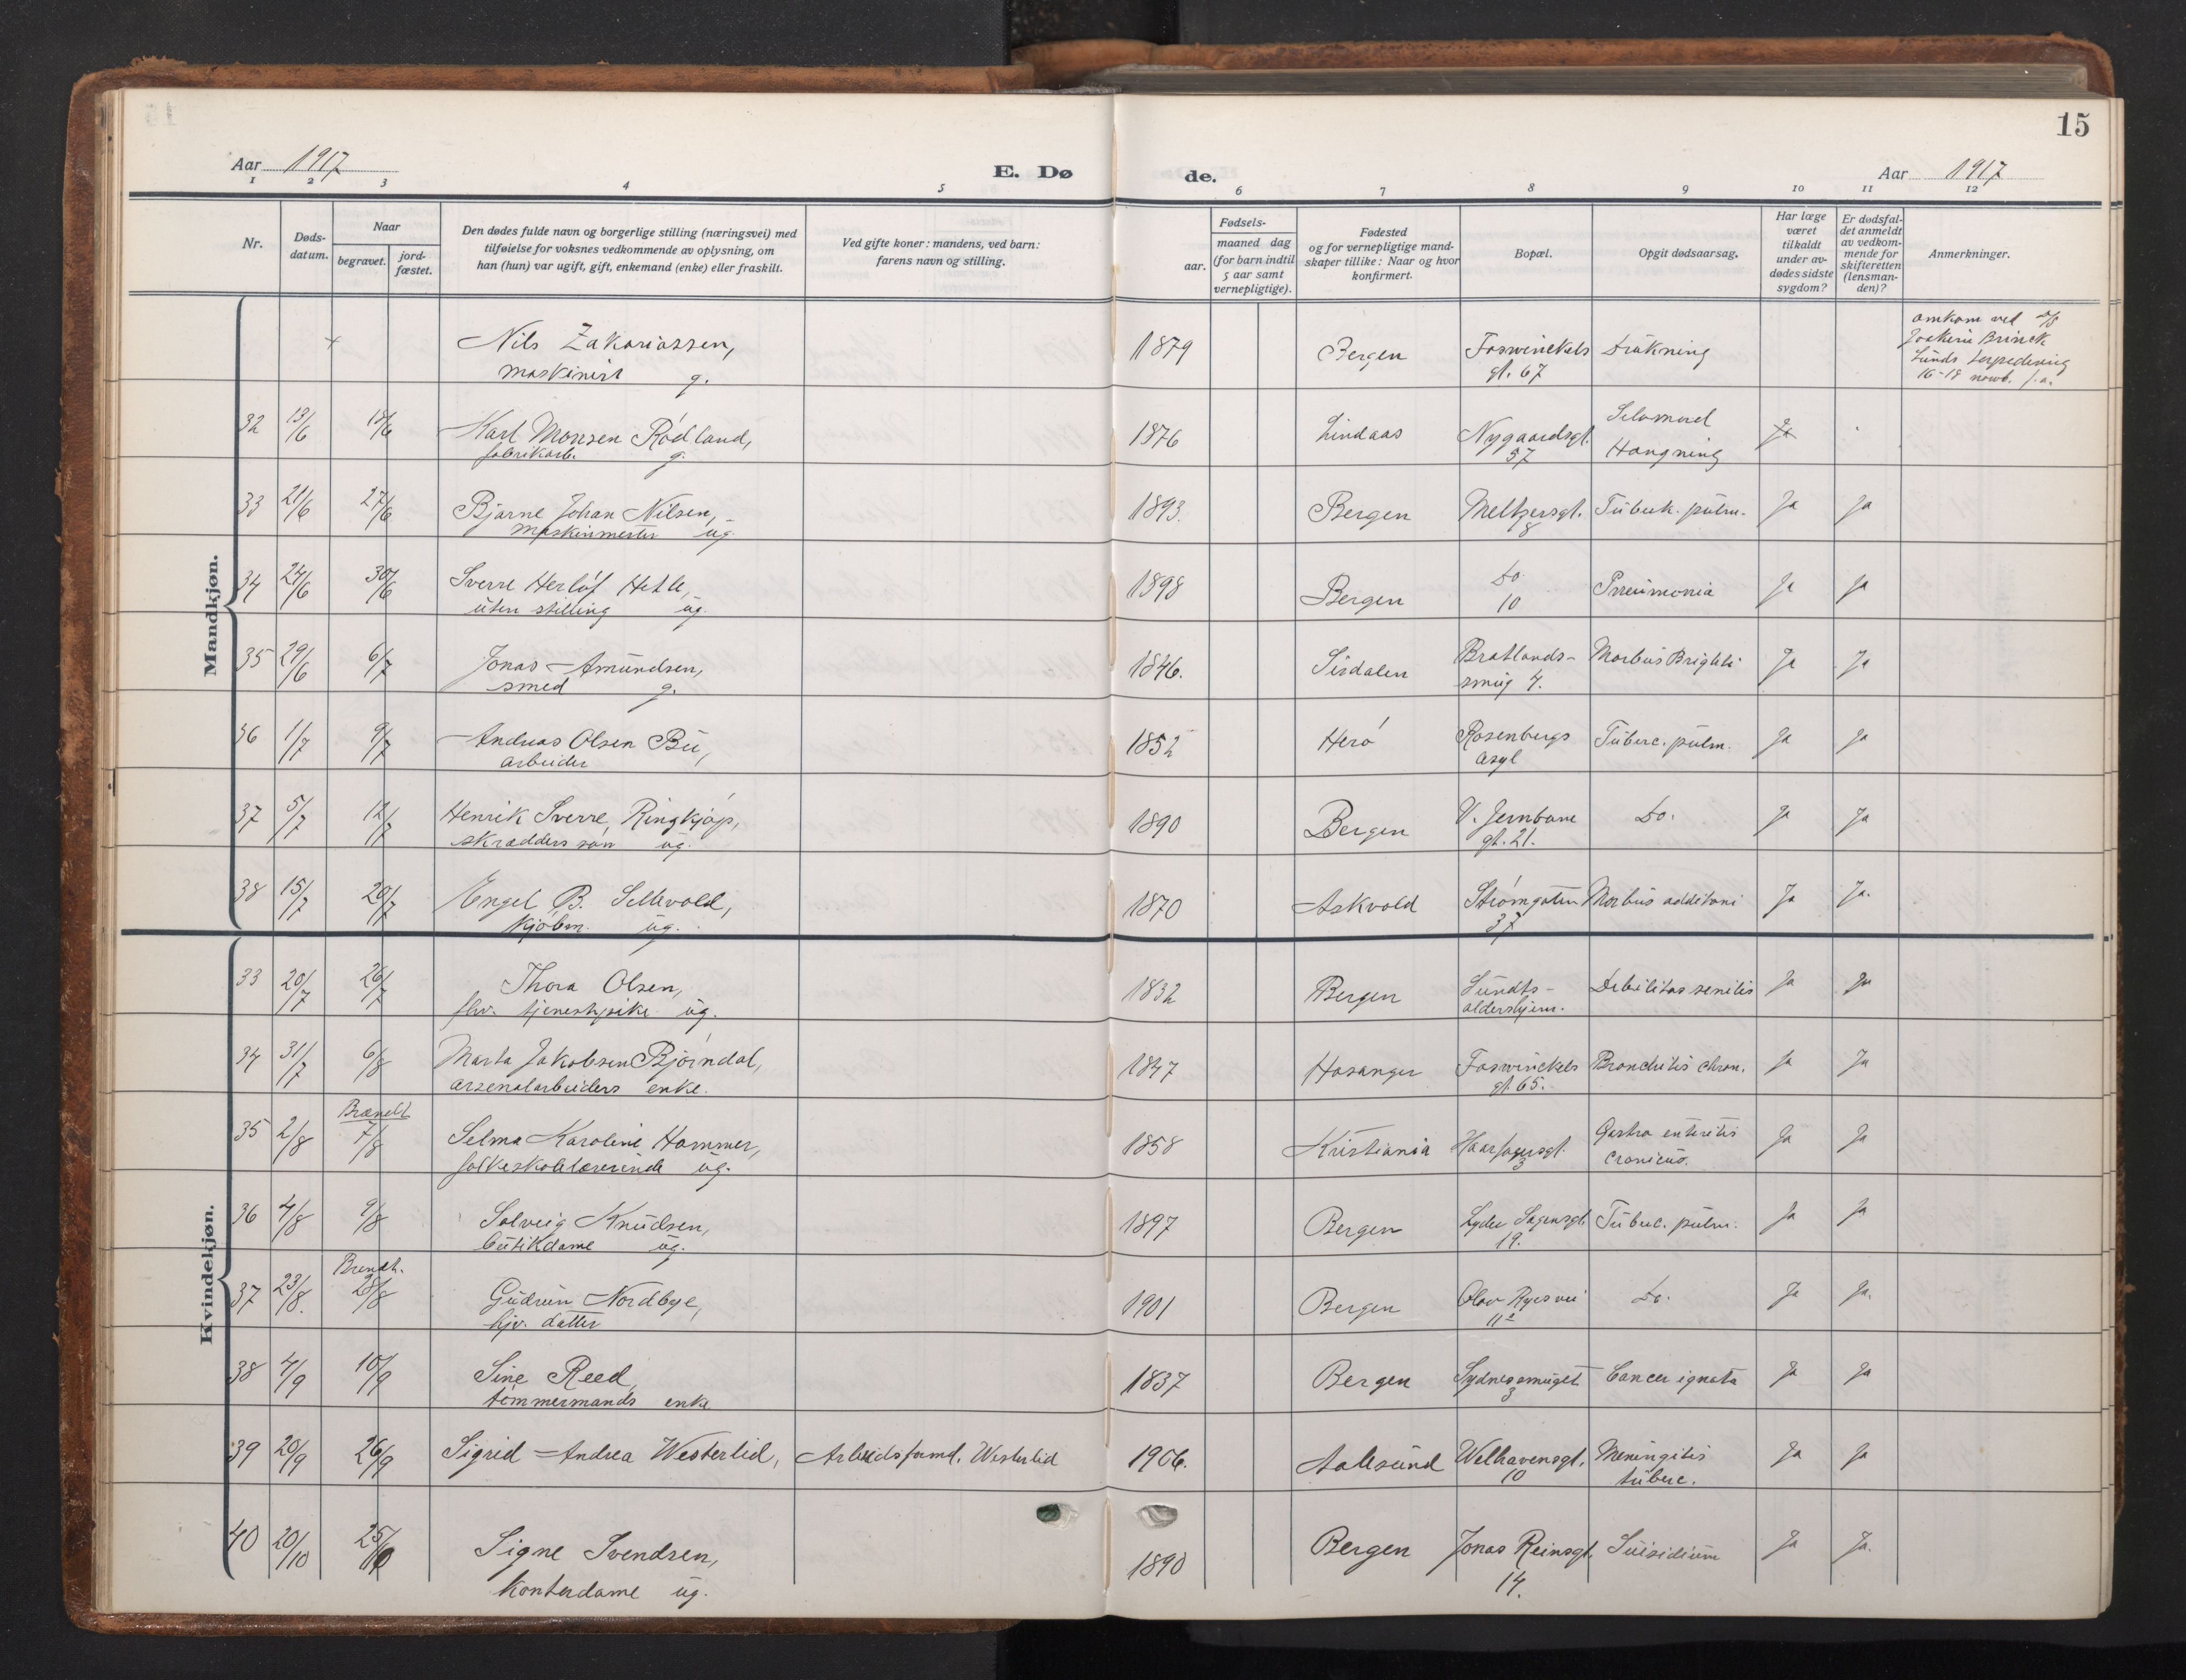 15
Aar 1917
E. Dø
de.
Aar 1917
1 2 3 4 5 6 7 8 9 10 11 12
Nr.
Døds-
datum.
Naar
begravet.
jord-
fæstet.
Den dødes fulde navn og borgerlige stilling (næringsvei) med
tilføielse for voksnes vedkommende av oplysning, om
han (hun) var ugift, gift, enkemand (enke) eller fraskilt.
Ved gifte koner: mandens, ved barn:
farens navn og stilling.
Fødsels-
aar.
maaned dag
(for barn indtil
5 aar samt
vernepligtige).
Fødested
og for vernepligtige mand-
skaper tillike: Naar og hvor
konfirmert.
Bopæl.
Opgit dødsaarsag.
Har læge
været
tilkaldt
under av-
dødes sidste
sygdom?
Er dødsfal-
det anmeldt
av vedkom-
mende for
skifteretten
(lensman-
den)?
Anmerkninger.
Mandkjøn.
Nils Zakariassen, 1879 Bergen Foswinckels Drukning
maskinist g. gt. 67
omkom ved D/S
Joakim Brinck
Lunds torpedering
16-18 novb. f.a.
32 13/6 18/6 Karl Monsen Rødland, 1876 Lindaas Nygaardsgt. Selvmord Ja
fabrikarb. g. 57 Hængning
33 21/6 27/6 Bjarne Johan Nilsen, 1893. Bergen Meltzersgt. Tuberk. pulm. Ja Ja
Maskinmester ug. 8
34 24/6 30/6 Sverre Herlof Hetle, 1898 Bergen Do Pneumonia Ja Ja
uten stilling ug. 10
35 29/6 6/7 Jonas Amundsen, 1846. Sirdalen Bratlands- Morbus Brighti Ja Ja
smed g. smug 4.
36 1/7 9/7 Andreas Olsen Bu, 1852 Herø Rosenbergs Tuberc. pulm. Ja Ja
arbeider asyl
37 5/7 12/7 Henrik Sverre Ringkjøp, 1890 Bergen V. Jernbane Do. Ja Ja
skrædders søn ug. gt. 21.
38 15/7 20/7 Engel B. Sellevold, 1870 Askvold Strømgaten Morbus addisoni Ja Ja.
kjøbm. ug. 37
Kvindekjøn.
33 20/7 26/7 Thora Olsen, 1832 Bergen Sundts- Debilitas senilis Ja Ja
fhv. tjenestpike ug. aldershjem.
34 31/7 6/8 Marta Jakobsen Bjørndal, 1847 Hosanger Foswinckels Bronchitis chron. Ja Ja
arsenalarbeiders enke. gt. 65.
Brændt
35 2/8 7/8 Selma Karoline Hammer, 1858 Kristiania Haarfagersgt. Gastro enteritis Ja Ja
folkeskolelærerinde ug. 3 cronicus.
36 4/8 9/8 Solveig Knudsen, 1897 Bergen Lyder Sagensgt. Tuberc. pulm. Ja Ja
butikdame ug. 19.
Brændt.
37 23/8. 28/8 Gudrun Nordbye, 1901 Bergen Olav Ryesvei Do. Ja Ja.
hjv. datter
38 4/9 10/9 Sine Reed, 1837 Bergen Sydnessmuget Cancer ignota Ja Ja
tømmermands enke 3
39 20/9 26/9 Sigrid Andrea Westerlid, Arbeidsformd. Westerlid 1906. Aalesund Welhavensgt. Meningitis Ja Ja
10 tuberc.
40 20/10 25/10 Signe Svendsen, 1890 Bergen Jonas Reinsgt. Suisidium Ja Ja.
Kontordame ug. 14.